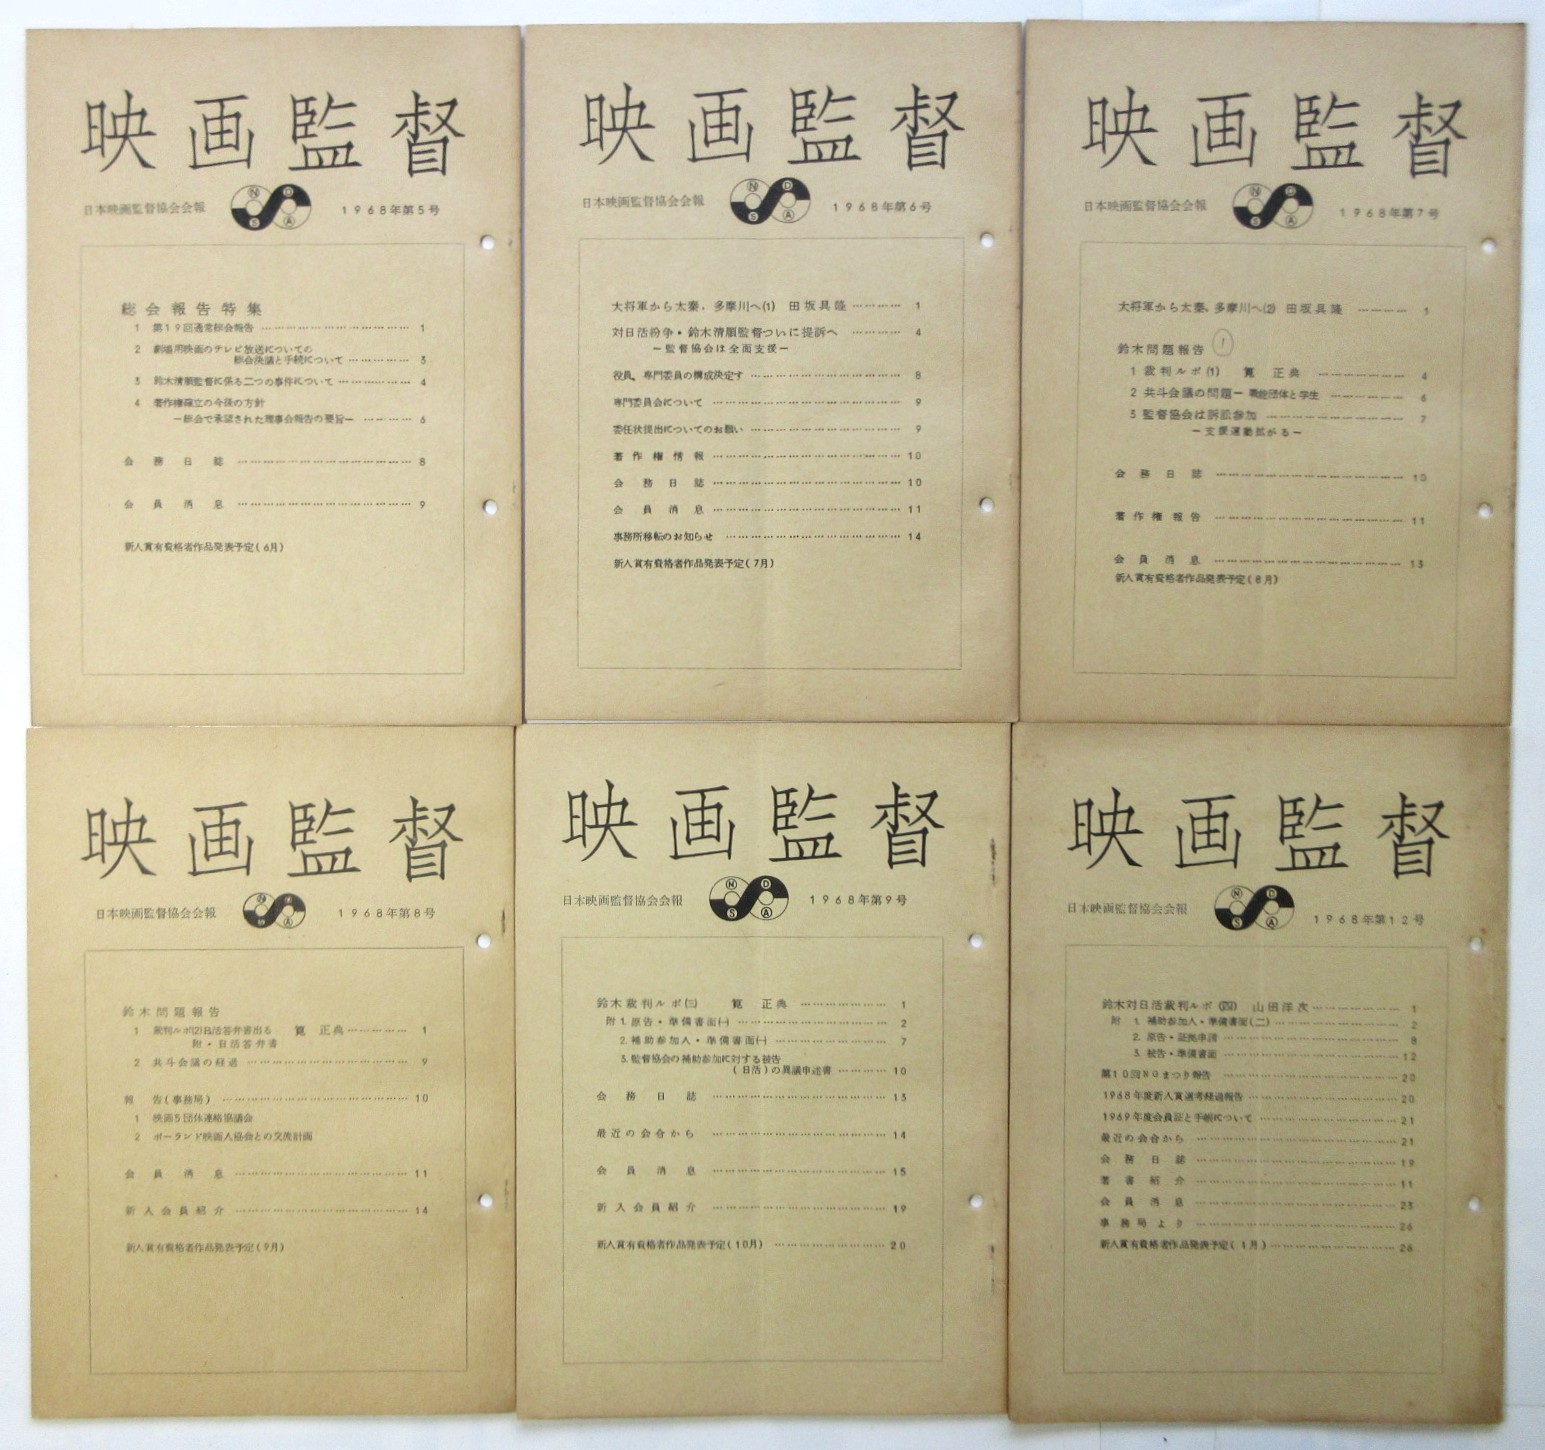 映画監督
日本映画監督協会会報
N D S A
1968年第5号
総会報告特集
1 第19回通常総会報告 ………………………… 1
2 劇場用映画のテレビ放送についての
総会決議と手続について …………… 3
3 鈴木清順監督に係る二つの事件について …………… 4
4 著作権確立の今後の方針
ー総会で承認された理事会報告の要旨ー ………… 6
会務日誌 ………………………… 8
会員消息 ………………………… 9
新人賞有資格者作品発表予定(6月)
映画監督
日本映画監督協会会報
N D S A
1968年第6号
大将軍から太秦、多摩川へ(1) 田坂具隆 ………… 1
対日活紛争・鈴木清順監督ついに提訴へ ………… 4
ー監督協会は全面支援ー
役員、専門委員の構成決定す ………………………… 8
専門委員会について ………………………… 9
委任状提出についてのお願い ………………………… 9
著作権情報 ………………………… 10
会務日誌 ………………………… 10
会員消息 ………………………… 11
事務所移転のお知らせ ………………………… 14
新人賞有資格者作品発表予定(7月)
映画監督
日本映画監督協会会報
N D S A
1968年第7号
大将軍から太秦、多摩川へ(2) 田坂具隆 ………… 1
鈴木問題報告 1
1 裁判ルポ(1) 筧 正典 ………… 4
2 共斗会議の問題ー職能団体と学生 ………… 6
3 監督協会は訴訟参加 ………………… 7
ー支援運動拡がるー
会務日誌 ………………………… 10
著作権報告 ………………………… 11
会員消息 ………………………… 13
新人賞有資格者作品発表予定(8月)
映画監督
日本映画監督協会会報
1968年第8号
鈴木問題報告
1 裁判ルポ(2)日活答弁書出る 筧 正典 ………… 1
附・日活答弁書
2 共斗会議の経過 ………………………… 9
報告(事務局) ………………………… 10
1 映画5団体連絡協議会
2 ポーランド映画人協会との交流計画
会員消息 ………………………… 11
新入会員紹介 ………………………… 14
新人賞有資格者作品発表予定(9月)
映画監督
日本映画監督協会会報
N D S A
1968年第9号
鈴木裁判ルポ(三) 筧 正典 ………… 1
附 1. 原告・準備書面(一) ………………… 2
2. 補助参加人・準備書面(一) ………………… 7
3. 監督協会の補助参加に対する被告
(日活)の異議申述書 ………… 10
会務日誌 ………………………… 13
最近の会合から ………………………… 14
会員消息 ………………………… 15
新入会員紹介 ………………………… 19
新人賞有資格者作品発表予定(10月) ………………… 20
映画監督
日本映画監督協会会報
N D S A
1968年第12号
鈴木対日活裁判ルポ(四) 山田洋次 ………… 1
附 1. 補助参加人・準備書面(二) ………………… 2
2. 原告・証拠申請 ………………… 8
3. 被告・準備書面 ………………… 12
第10回NGまつり報告 ………………… 20
1968年度新人賞選考経過報告 ………………… 20
1969年度会員証と手帳について ………………… 21
最近の会合から ………………… 21
会務日誌 ………………… 19
著書紹介 ………………… 11
会員消息 ………………… 23
事務局より ………………… 26
新人賞有資格者作品発表予定(1月) ………………… 26